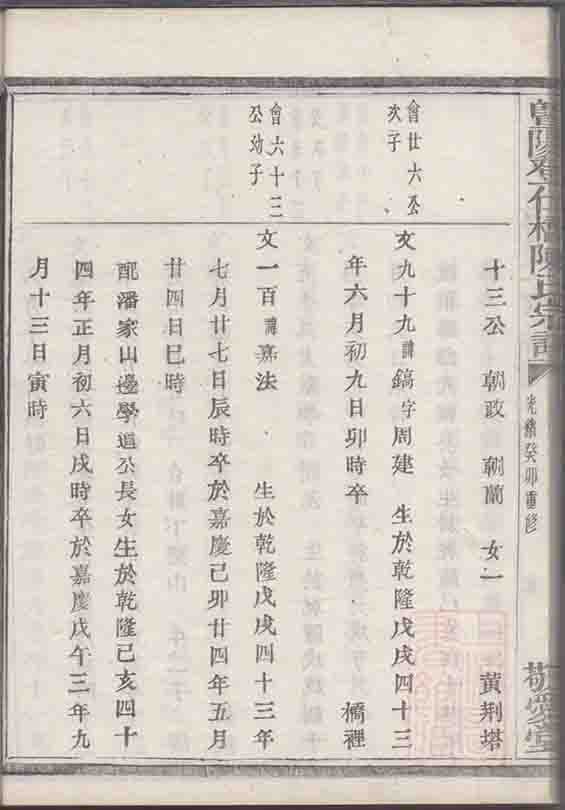 暨陽孝仁橋陳氏宗譜
光緒癸卯重修
敬愛堂
十三公 朝政 朝蘭 女一 黄荆塔
會廿六公
次子
文九十九諱鎬字周建 生於乾隆戊戌四十三
年六月初九日卯時卒 橋裡
會六十三
公幼子
文一百諱嘉法 生於乾隆戊戌四十三年
七月廿七日辰時卒於嘉慶己卯廿四年五月
廿四日巳時
配潘家山邊學道公長女生於乾隆己亥四十
四年正月初六日戌時卒於嘉慶戊午三年九
月十三日寅時